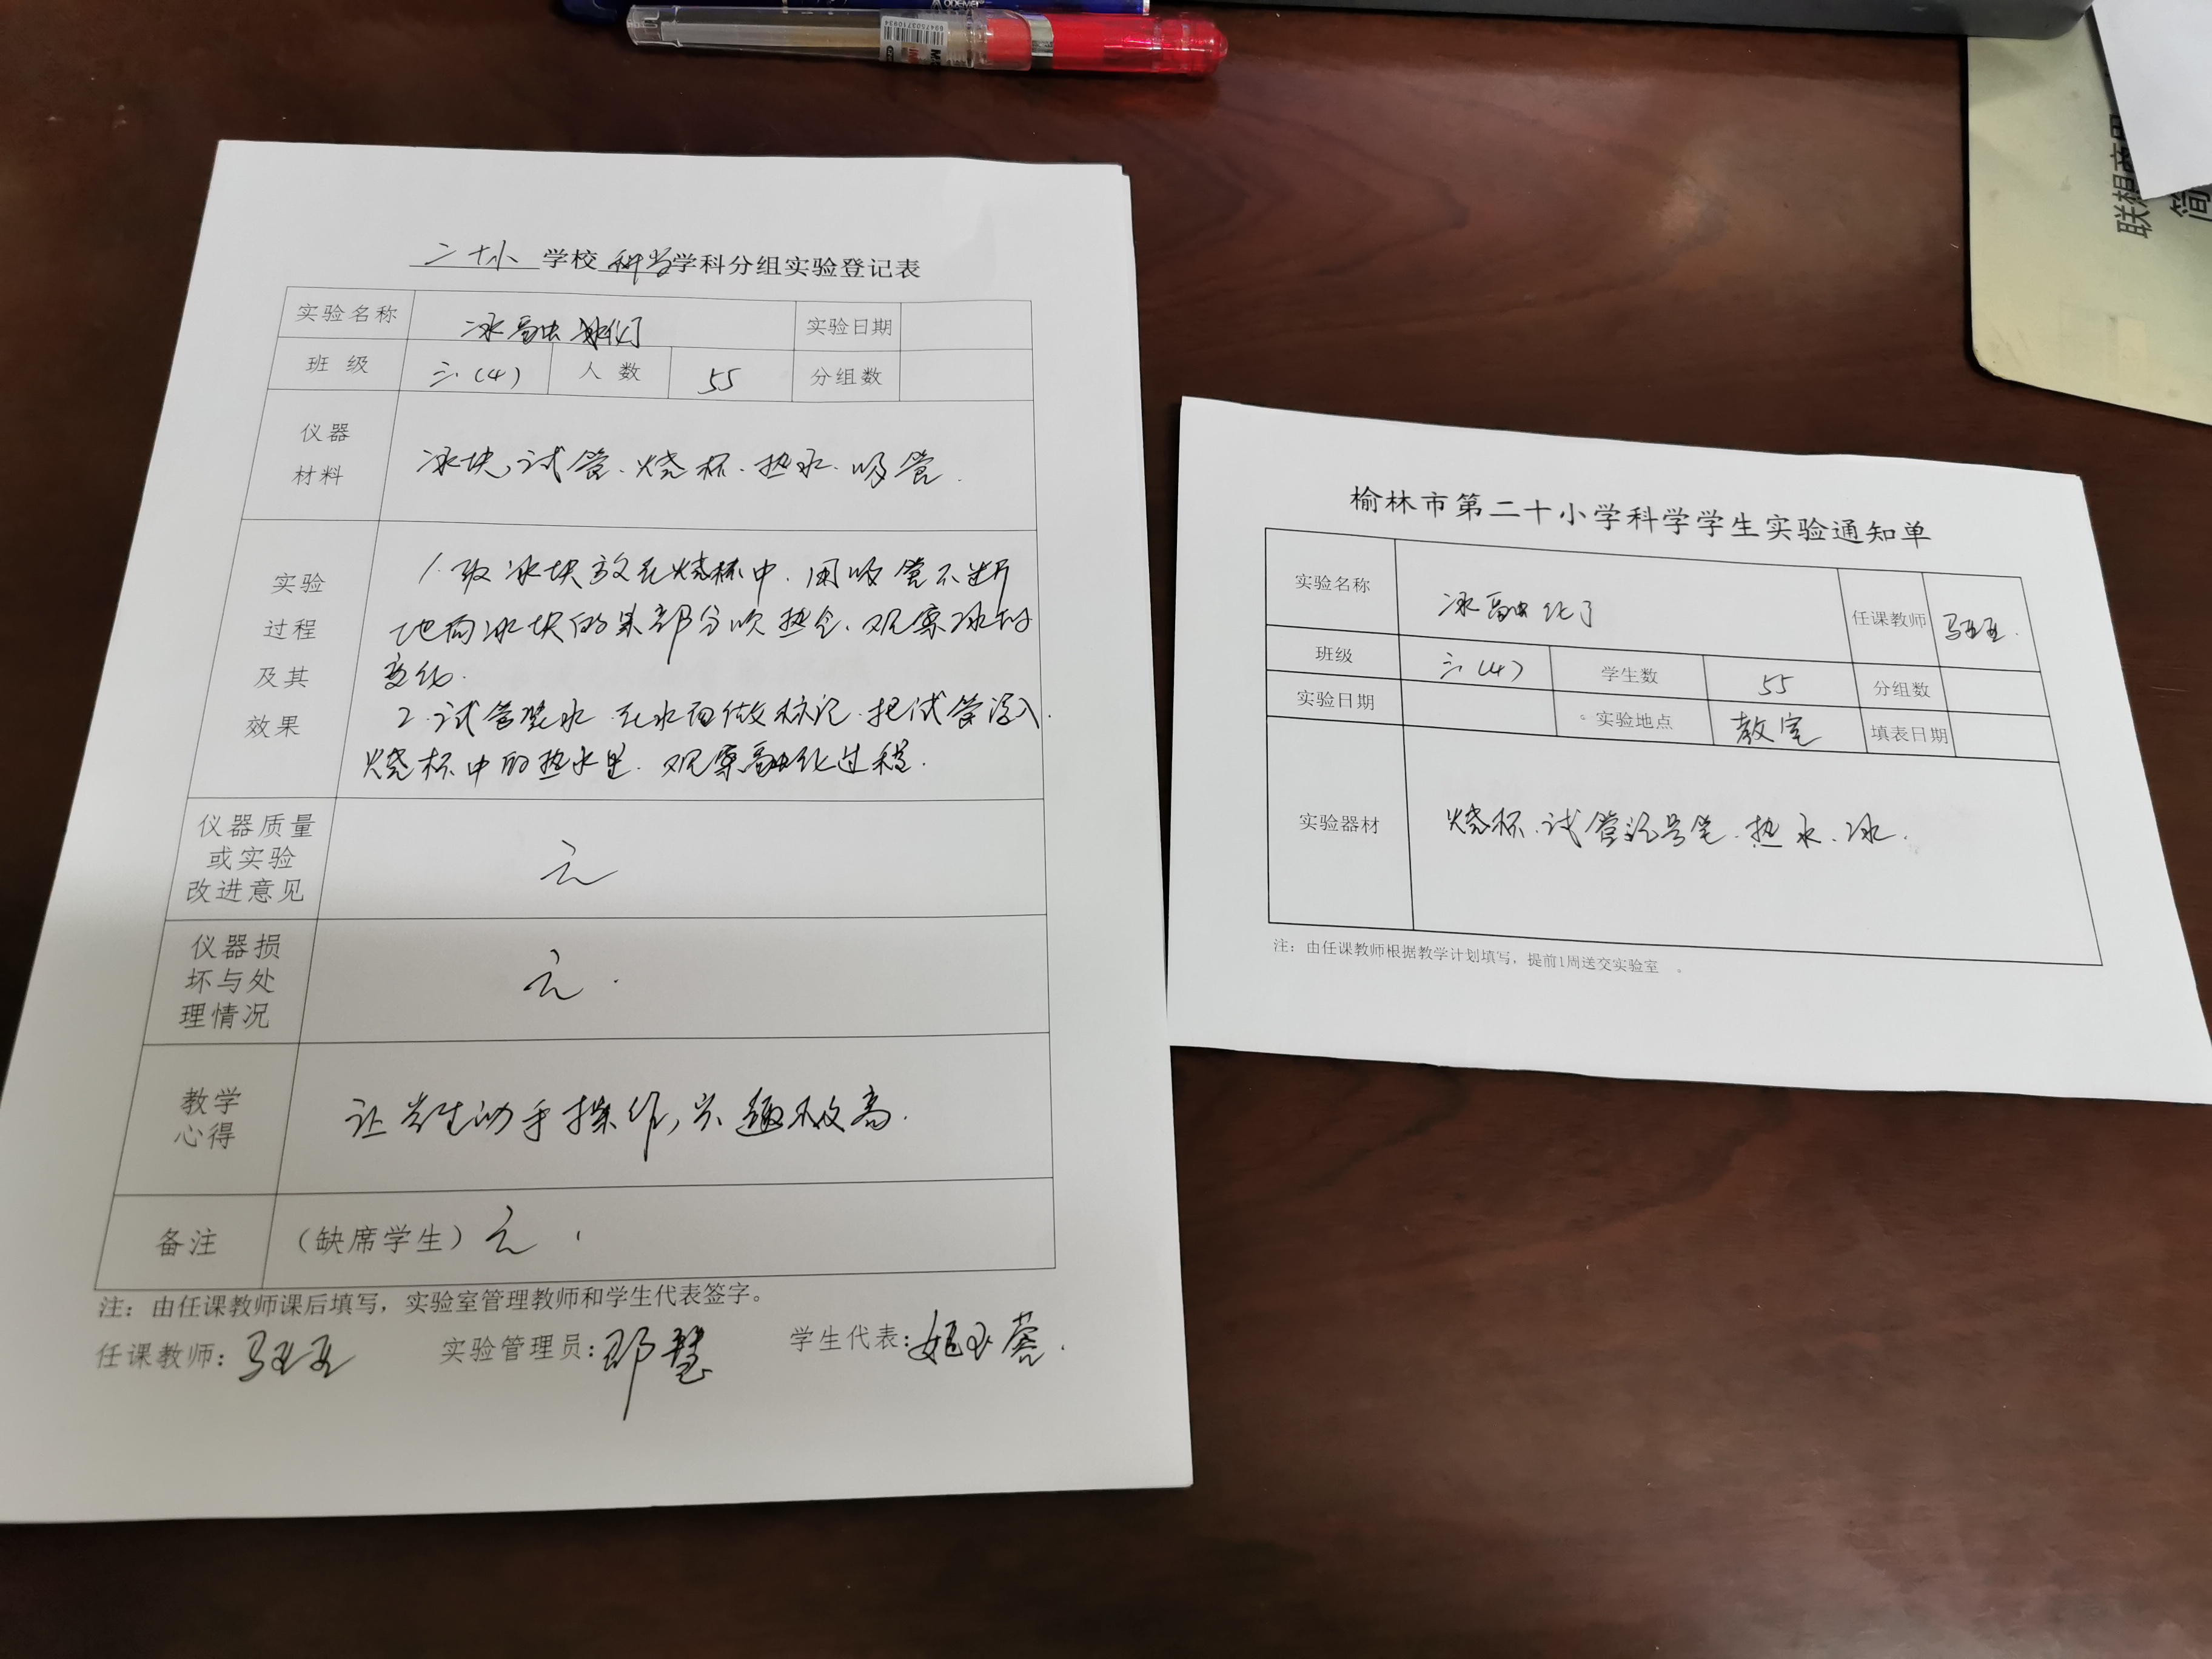 二十小 学校 科学 学科分组实验登记表
实验名称 冰融化了 实验日期
班 级 三.(4) 人 数 55 分组数
仪器
材料
冰块、试管、烧杯、热水、吸管.
实验
过程
及其
效果
1.取冰块放在烧杯中.用吸管不断
地向冰块的某部分吹热气.观察冰的
变化.
2.试管装冰.在水面做标记.把试管浸入
烧杯中的热水里.观察融化过程.
仪器质量
或实验
改进意见
无
仪器损
坏与处
理情况
无.
教学
心得
让学生动手操作,兴趣极高.
备注 (缺席学生) 无.
注: 由任课教师课后填写, 实验室管理教师和学生代表签字。
任课教师:
实验管理员: 邵慧
学生代表:
榆林市第二十小学科学学生实验通知单
实验名称 冰融化了 任课教师
班级 三.(4) 学生数 55 分组数
实验日期 实验地点 教室 填表日期
实验器材 烧杯.试管.记号笔.热水.冰.
注: 由任课教师根据教学计划填写, 提前1周送交实验室 。